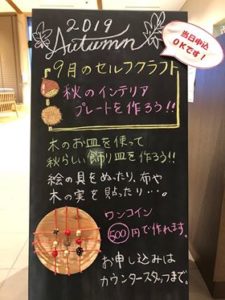 2019
Autumn
当日申込
OKです!
9月のセルフクラフト
秋のインテリア
プレートを作ろう!!
木のお皿を使って
秋らしい飾り皿を作ろう!!
絵の具をぬったり、布や
木の実を貼ったり…。
ワンコイン
500円で作れます。
お申し込みは
カウンタースタッフまで。